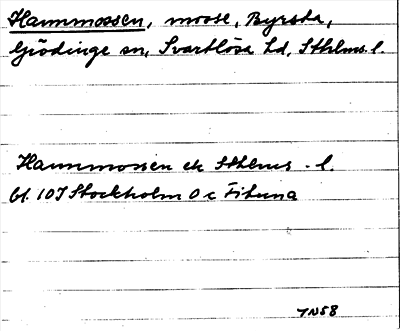 Hammmossen, mosse, Byrsta,
Grödinge sn, Svartlösa hd, Sthlms l.
Hammmossen ek Sthlms l.
bl. 10I Stockholm
TN58